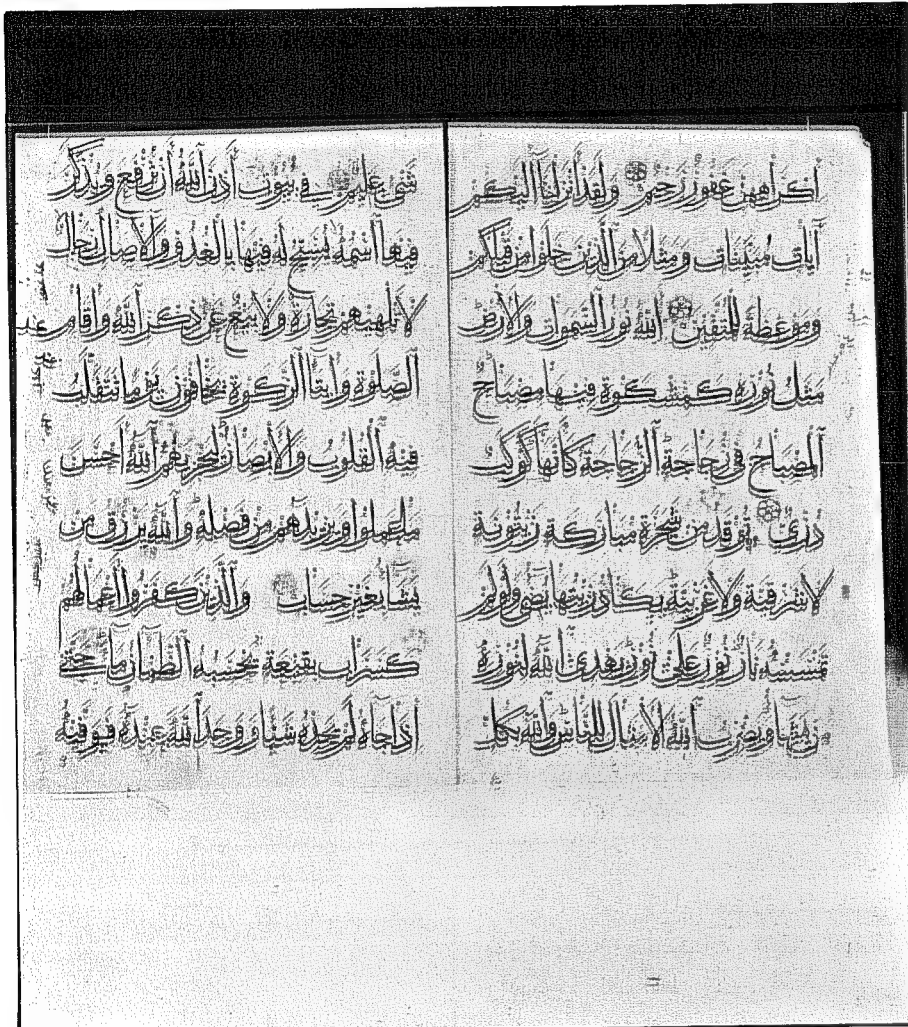 اكراههن غفور رحيم ولقد انزلنا اليكم
آيات مبينات ومثلا من الذين خلوا من قبلكم
وموعظة للمتقين الله نور السموات والارض
مثل نوره كمشكوة فيها مصباح
المصباح في زجاجة الزجاجة كأنها كوكب
دري توقد من شجرة مباركة زيتونة
لا شرقية ولا غربية يكاد زيتها يضي ولو لم
تمسسه نار نور على نور يهدى الله لنوره
من يشا ويضرب الله الامثال للناس والله بكل
شى عليم في بيوت أذن الله أن ترفع ويذكر
فيها اسمه يسبح له فيها بالغدو والاصال رجال
لا تلهيهم تجارة ولا بيع عن ذكر الله واقام
الصلوة وايتا الزكوة يخافون يوما تتقلب
فيه القلوب والابصار ليجزيهم الله احسن
ما عملوا ويزيدهم من فضله والله يرزق من
يشا بغير حساب والذين كفروا اعمالهم
كسراب بقيعة يحسبه الظمان ما حتى
اذا جاه لم يجده شيا ووجد الله عنده فوفيه